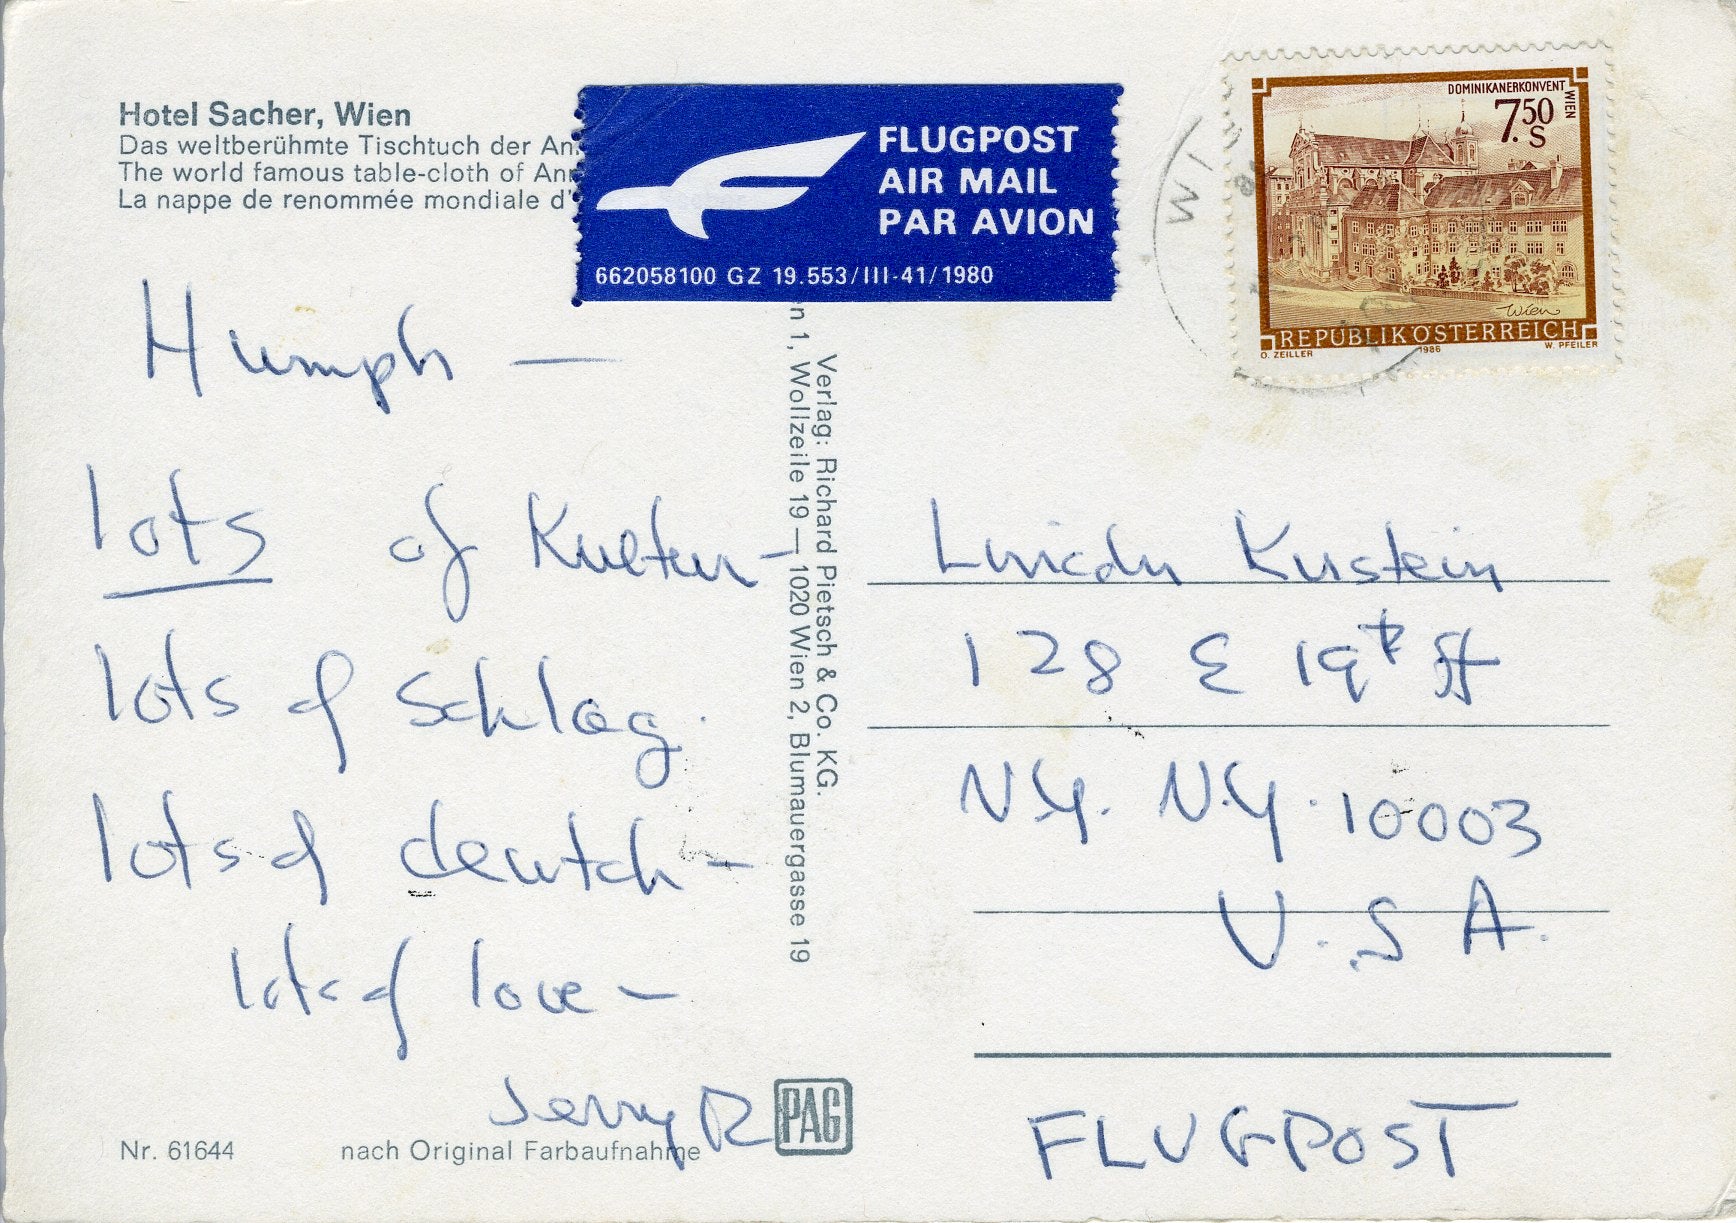 Hotel Sacher, Wien
Das weltberühmte Tischtuch der An
The world famous table-cloth of Ann
La nappe de renommée mondiale d'
FLUGPOST
AIR MAIL
PAR AVION
662058100 GZ 19.553/III-41/1980
DOMINIKANERKONVENT
WIEN
7.50
S
Wien
REPUBLIK ÖSTERREICH
O. ZEILLER 1986 W. PFEILER
WI
Humph —
lots of Kultur —
lots of Schlag.
lots of deutch —
lots of love —
Jerry R
Verlag: Richard Pietsch & Co. KG.
n 1, Wollzeile 19 — 1020 Wien 2, Blumauergasse 19
Lincoln Kirstein
128 E 19th St
N.Y. N.Y. 10003
U.S.A.
FLUGPOST
Nr. 61644 nach Original Farbaufnahme
PAG